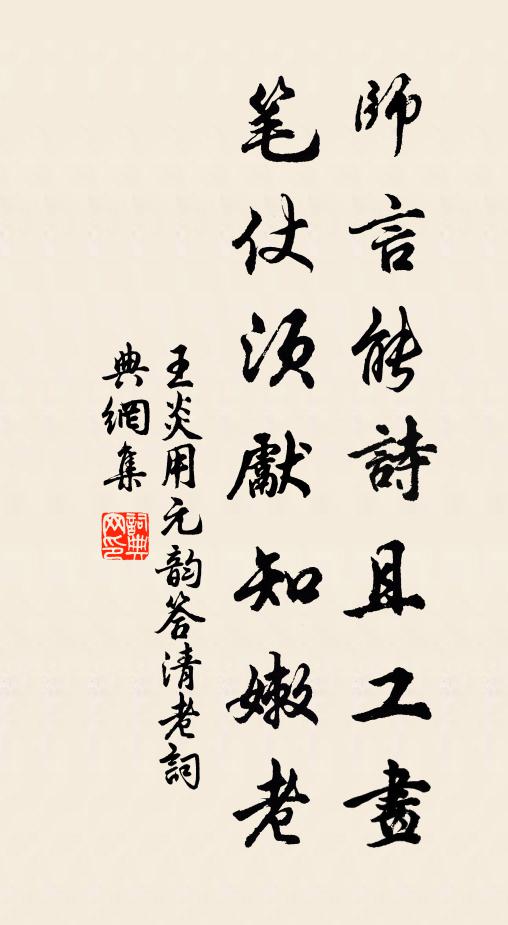 師言能詩且工畫
笔仗須獻知嫩老
王炎用元韵答清老詞
典網集
詞典網印